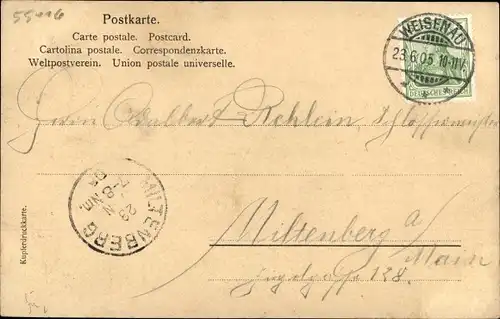 55416
Postkarte.
Carte postale. Postcard.
Cartolina postale. Correspondenzkarte.
Weltpostverein. Union postale universelle.
WEISENAU
23.6.05. 10-11V.
DEUTSCHES REICH
Herrn Adalbert Rehlein, Schlossermeister
MILTENBERG
23
8-9 Nm.
05
Miltenberg a/
Main
128.
Kupferdruckkarte.